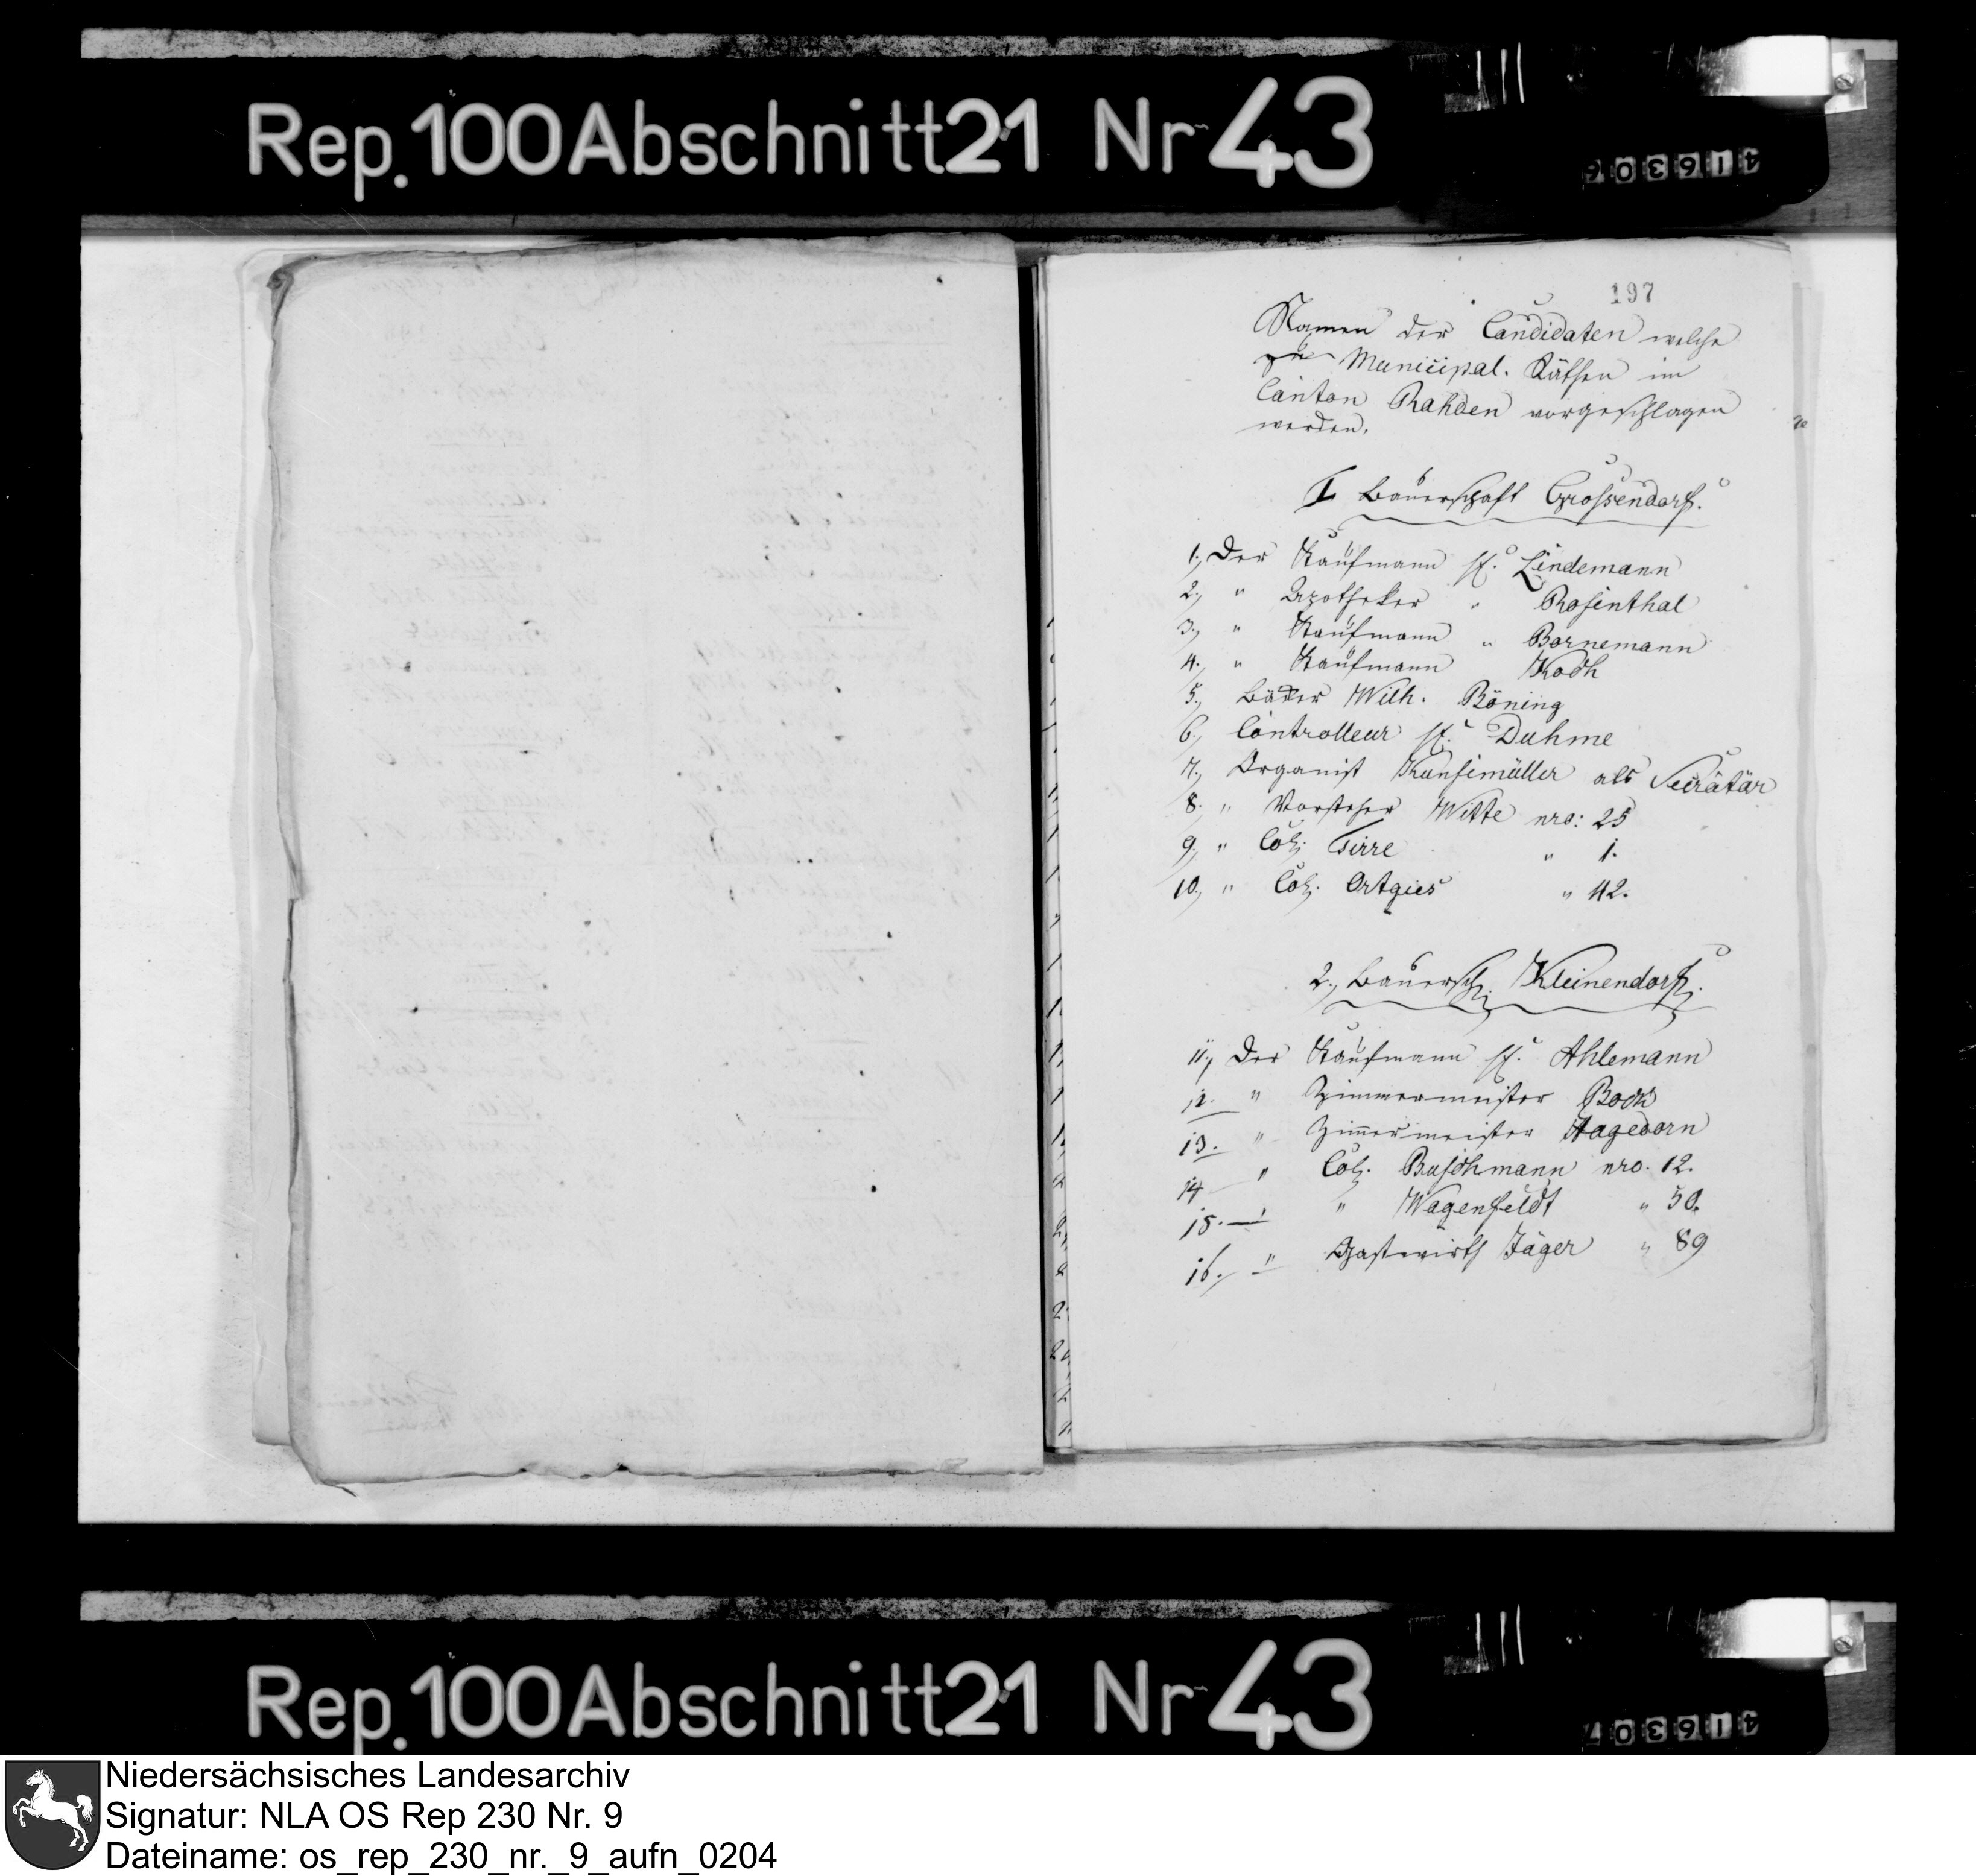 Rep. 100 Abschnitt 21 Nr 43
416306
197
Namen der Candidaten welche
zu Municipal. Räthen im
Canton Rahden vorgeschlagen
werden.
I Bauerschaft Grossendorf.
1., Der Kaufmann H. Lindemann
2., " Apotheker " Rosenthal
3., " Kaufmann " Bornemann
4., " Kaufmann Koch
5., Bäcker Wilh. Böning
6., Controlleur H. Duhme
7., Organist Kunsemüller als Secrätär
8. " Vorsteher Witte nro: 25
9., " Col. Tirre " 1.
10., " Col. Ortgies " 42.
2., Bauersch. Kleinendorf.
11., Der Kaufmann H. Ahlemann
12. " Zimmermeister Bock
13. " Zimmermeister Hagedorn
14 " Col. Buschmann nro. 12.
15. — " " Wagenfeldt " 50.
16., " Gastwirth Jäger " 89
Rep. 100 Abschnitt 21 Nr 43
416307
Niedersächsisches Landesarchiv
Signatur: NLA OS Rep 230 Nr. 9
Dateiname: os_rep_230_nr._9_aufn_0204